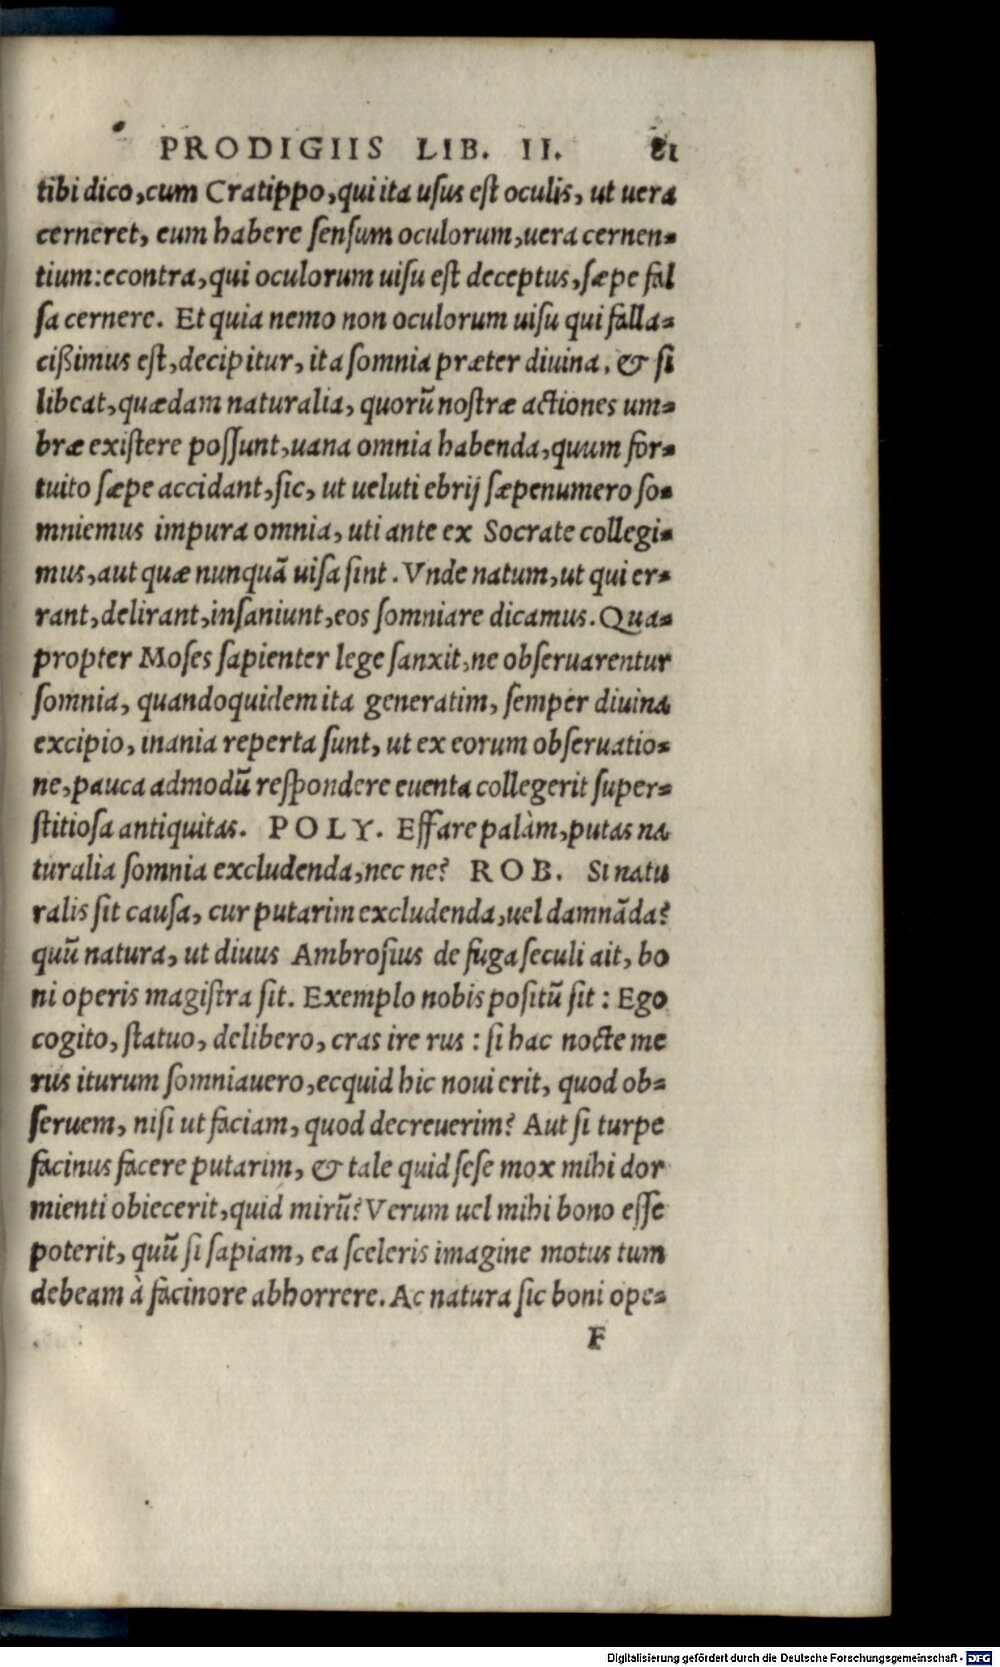 PRODIGIIS LIB. II. 81
tibi dico, cum Cratippo, qui ita usus est oculis, ut uera
cerneret, eum habere sensum oculorum, uera cernen-
tium: econtra, qui oculorum uisu est deceptus, sæpe fal
sa cernere. Et quia nemo non oculorum uisu qui falla-
cißimus est, decipitur, ita somnia præter diuina, & si
libeat, quædam naturalia, quorũ nostræ actiones um-
bræ existere possunt, uana omnia habenda, quum for-
tuito sæpe accidant, sic, ut ueluti ebrij sæpenumero so-
mniemus impura omnia, uti ante ex Socrate collegi-
mus, aut quæ nunquã uisa sint. Vnde natum, ut qui er-
rant, delirant, insaniunt, eos somniare dicamus. Qua-
propter Moses sapienter lege sanxit, ne obseruarentur
somnia, quandoquidem ita generatim, semper diuina
excipio, inania reperta sunt, ut ex eorum obseruatio-
ne, pauca admodũ respondere euenta collegerit super-
stitiosa antiquitas. POLY. Effare palàm, putas na
turalia somnia excludenda, nec ne? ROB. Si natu
ralis sit causa, cur putarim excludenda, uel damnãda?
quũ natura, ut diuus Ambrosius de fuga seculi ait, bo
ni operis magistra sit. Exemplo nobis positũ sit: Ego
cogito, statuo, delibero, cras ire rus: si hac nocte me
rus iturum somniauero, ecquid hic noui erit, quod ob-
seruem, nisi ut faciam, quod decreuerim? Aut si turpe
facinus facere putarim, & tale quid sese mox mihi dor
mienti obiecerit, quid mirũ? Verum uel mihi bono esse
poterit, quũ si sapiam, ea sceleris imagine motus tum
debeam à facinore abhorrere. Ac natura sic boni ope-
F
Digitalisierung gefördert durch die Deutsche Forschungsgemeinschaft - DFG